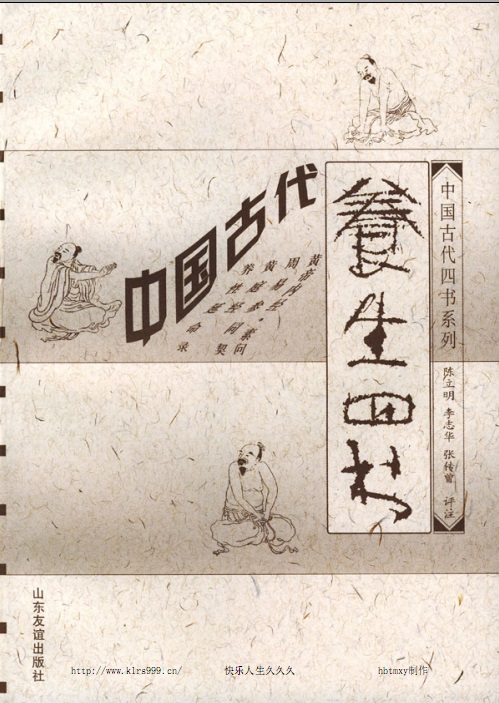 中国古代
養生四书
中国古代四书系列
陈立明 李志华 张传曾 评注
黄帝内经·素问
周易参同契
黄庭经
养性延命录
山东友谊出版社
http://www.klrs999.cn/ 快乐人生久久久 hbtmxy制作